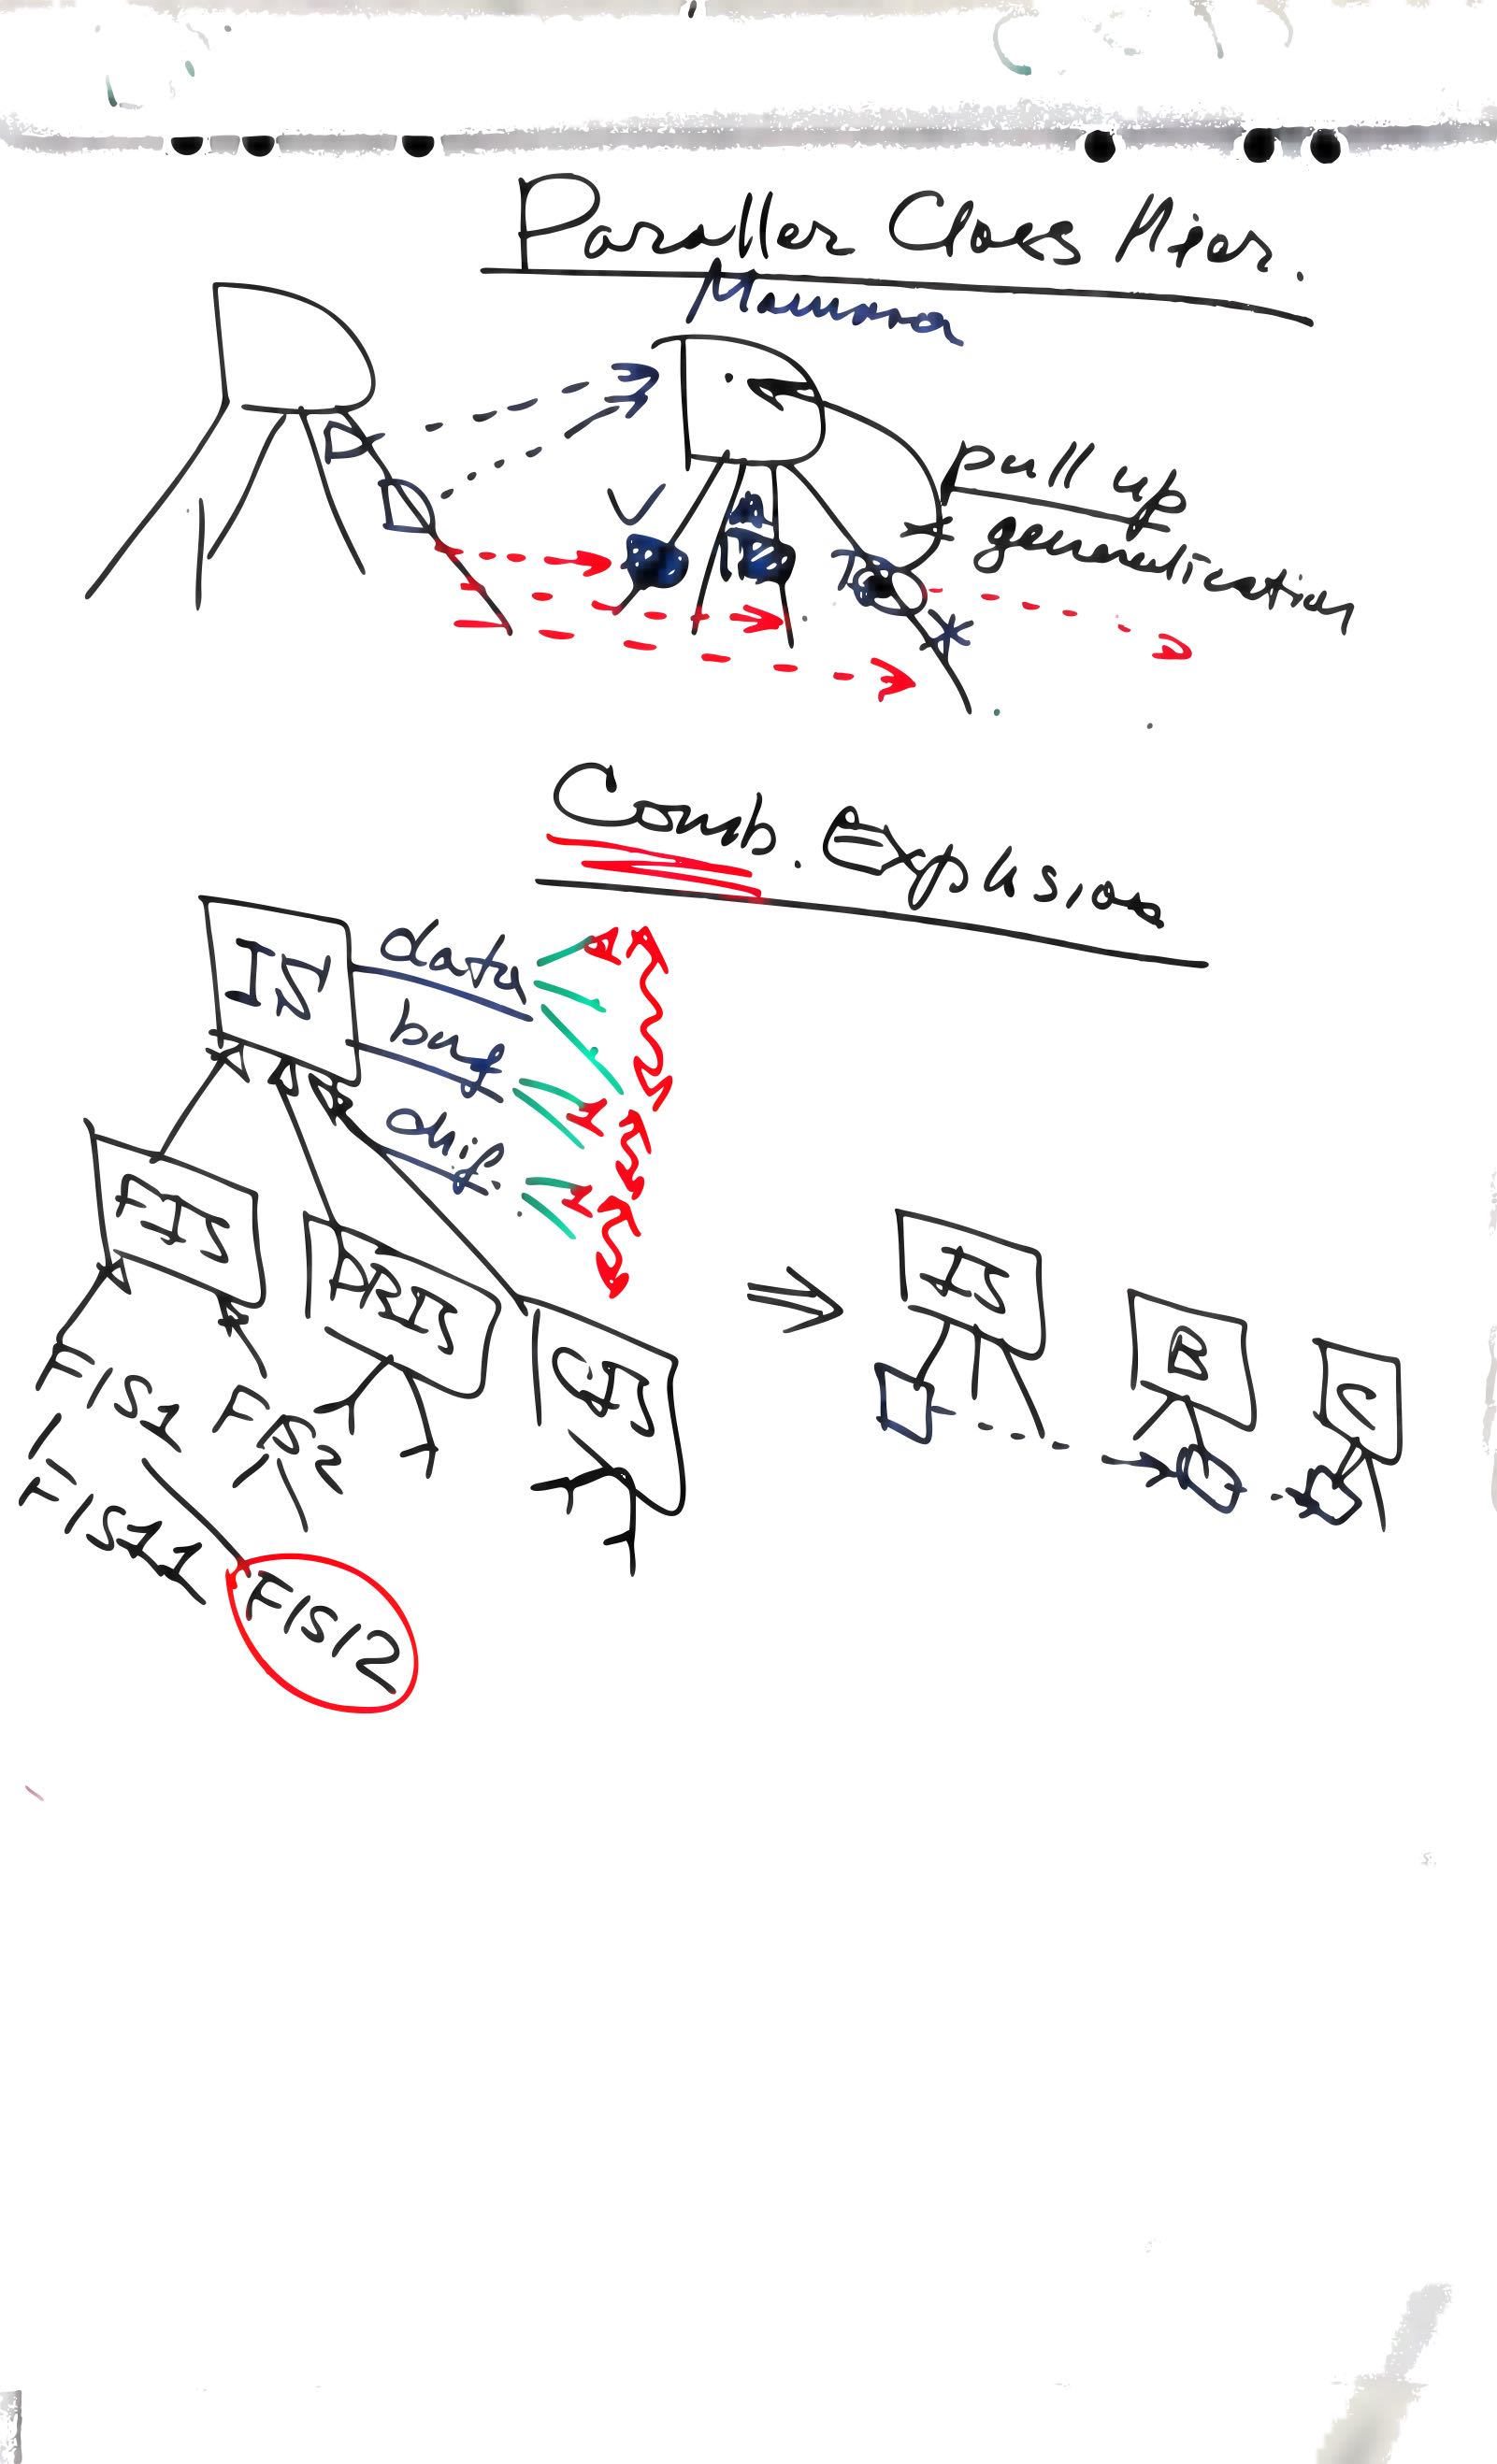 Paraller Class Hier.
Mamma
pull up
generalication
Comb. Explusion
IS
data
buf
chif.
FIS
DRIS
CIS
FIS1
FISR
FIS11
FIS12
IS
B
C